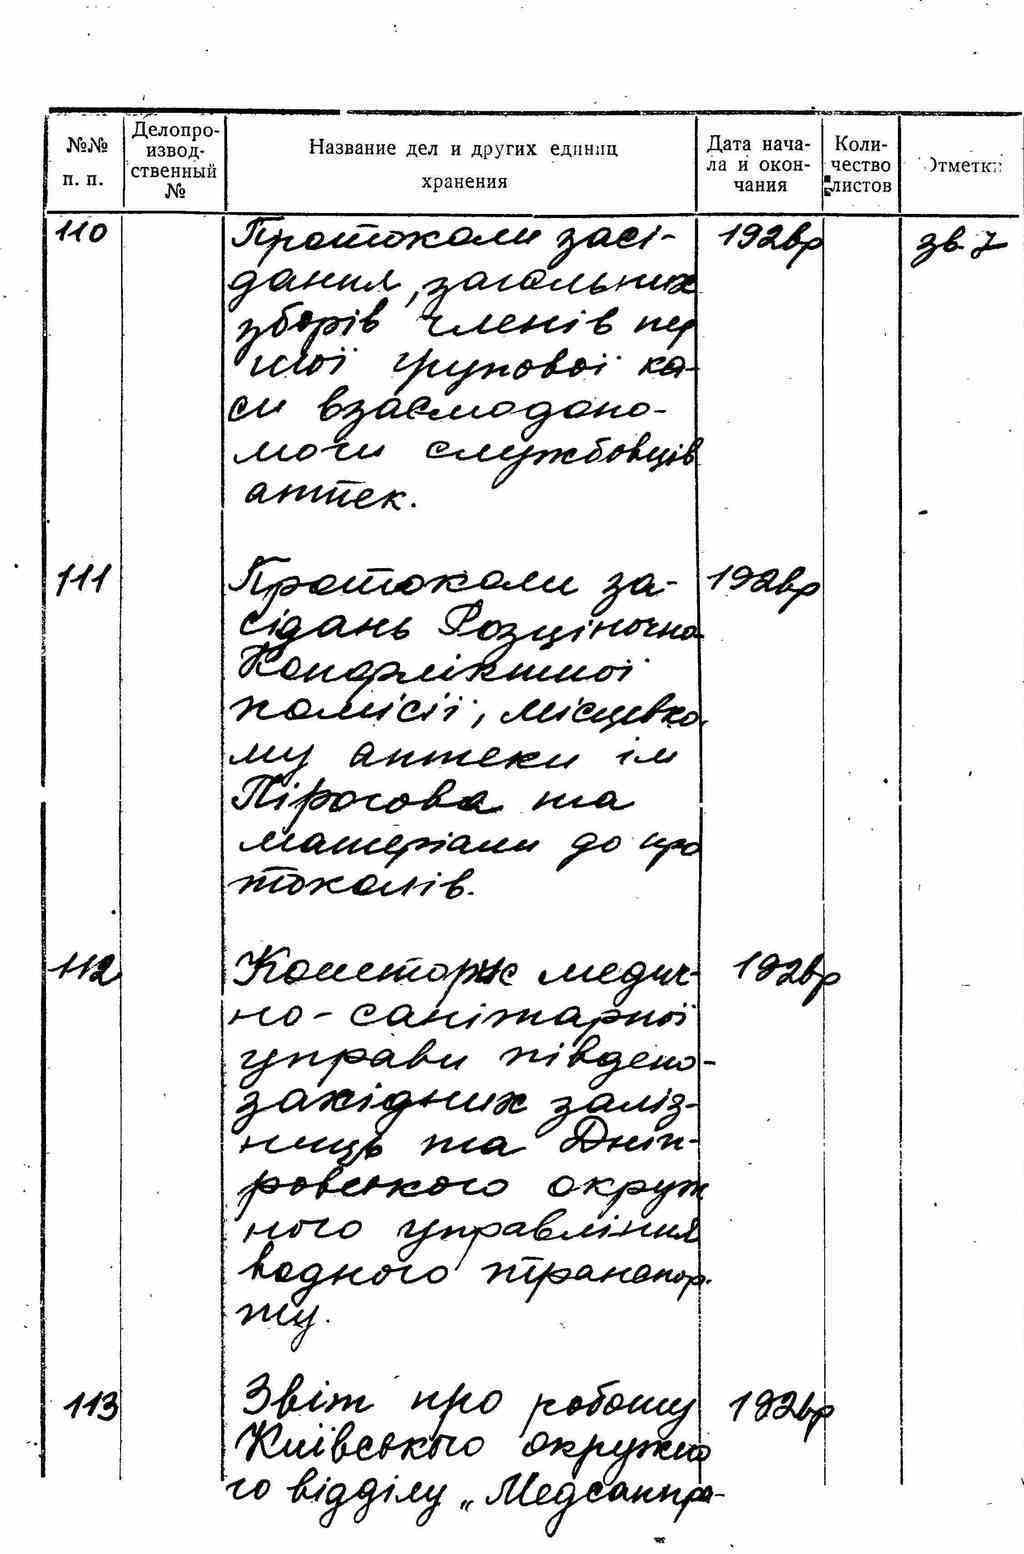 №№ п. п.
Делопро-
извод-
ственный
№
Название дел и других единиц
хранения
Дата нача-
ла и окон-
чания
Коли-
чество
листов
Отметки
110
Протоколи засі-
дания, загальних
зборів членів пер
шої групової ка-
си взаємодопо-
моги службовців
аптек.
1926р
зв.
111
Протоколи за-
сідань Розціночно
Конфліктної
комісії, місцевко-
му аптеки ім
Пірогова та
матеріали до про
токолів.
1926р
112
Кошторис медич-
но-санітарної
управи південо-
західних заліз-
ниць та Дніп-
ровського окруж
ного управління
водного транспор-
ту.
1926р
113
Звіт про роботу
Київського окружно
го відділу „Медсанпра-
1926р